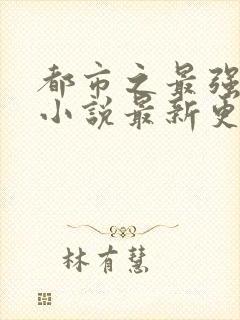 都市之最强
小说最新更
林有慧